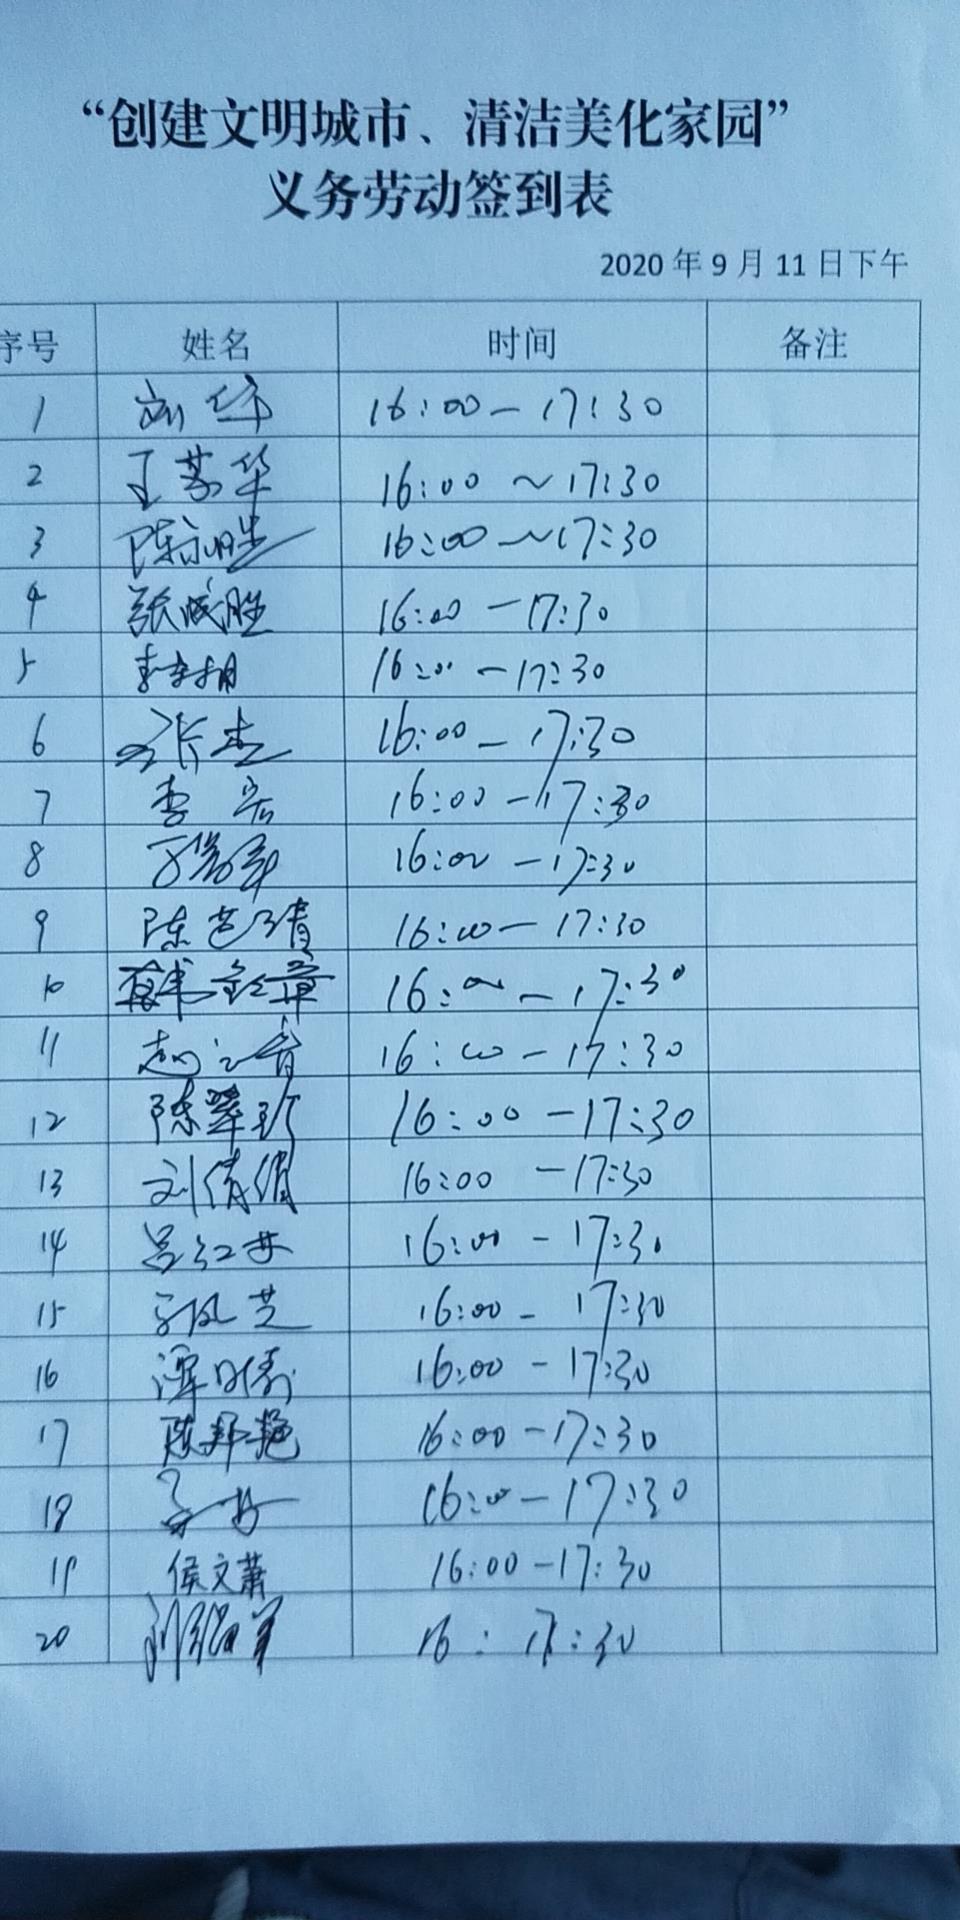 “创建文明城市、清洁美化家园”
义务劳动签到表
2020年9月11日下午
序号 姓名 时间 备注
1 刘华 16:00-17:30
2 王苏华 16:00~17:30
3 陈永胜 16:00~17:30
4 张成胜 16:00-17:30
5 16:00-17:30
6 16:00-17:30
7 李宏 16:00-17:30
8 16:00-17:30
9 陈艺靖 16:00-17:30
10 16:00-17:30
11 16:00-17:30
12 陈翠玲 16:00-17:30
13 刘倩倩 16:00-17:30
14 吕红井 16:00-17:30
15 16:00-17:30
16 16:00-17:30
17 陈邦艳 16:00-17:30
18 16:00-17:30
19 侯文萧 16:00-17:30
20 16: 17:30